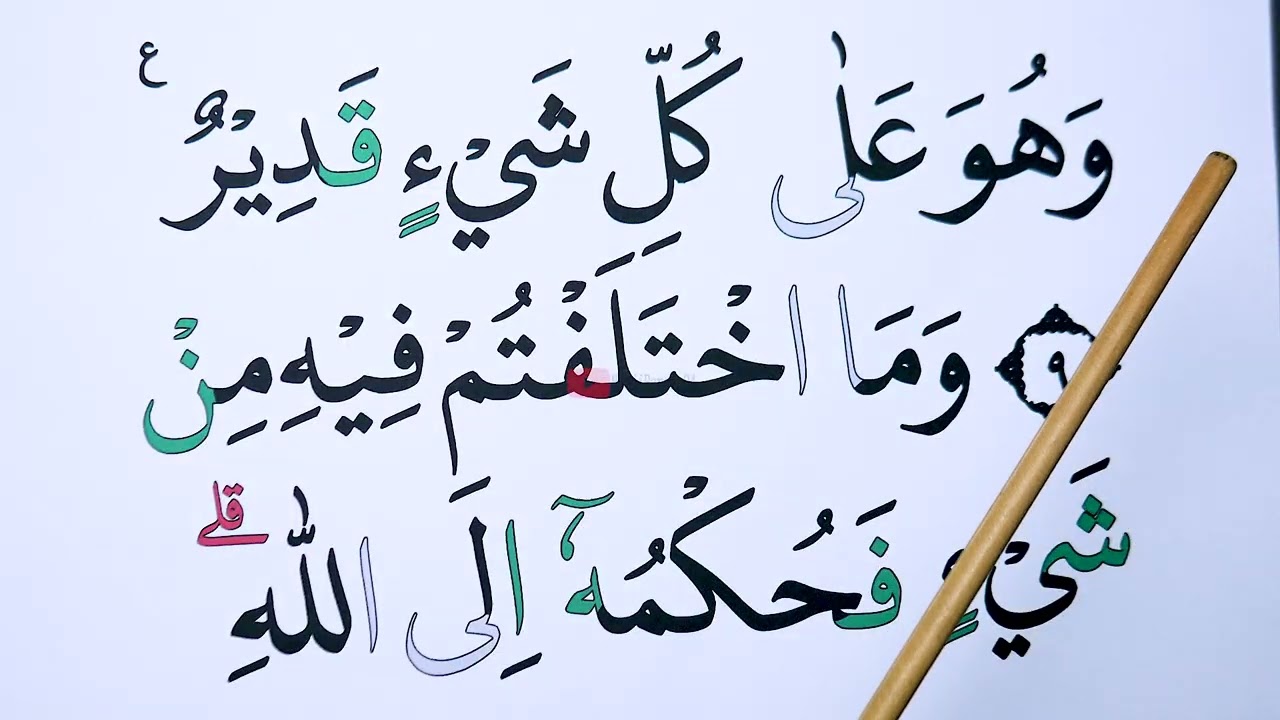 وَهُوَ عَلٰى كُلِّ شَيْءٍ قَدِيْرٌ ع
۹ وَمَا اخْتَلَفْتُمْ فِيْهِ مِنْ
شَيْءٍ فَحُكْمُهٗۤ اِلَى اللّٰهِ ؕقلے